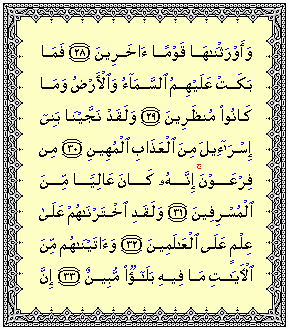 وَأَوْرَثْنَٰهَا قَوْمًا ءَاخَرِينَ ﴿٢٨﴾ فَمَا
بَكَتْ عَلَيْهِمُ ٱلسَّمَآءُ وَٱلْأَرْضُ وَمَا
كَانُوا۟ مُنظَرِينَ ﴿٢٩﴾ وَلَقَدْ نَجَّيْنَا بَنِىٓ
إِسْرَٰٓءِيلَ مِنَ ٱلْعَذَابِ ٱلْمُهِينِ ﴿٣٠﴾ مِن
فِرْعَوْنَ ۚ إِنَّهُۥ كَانَ عَالِيًا مِّنَ
ٱلْمُسْرِفِينَ ﴿٣١﴾ وَلَقَدِ ٱخْتَرْنَٰهُمْ عَلَىٰ
عِلْمٍ عَلَى ٱلْعَٰلَمِينَ ﴿٣٢﴾ وَءَاتَيْنَٰهُم مِّنَ
ٱلْءَايَٰتِ مَا فِيهِ بَلَٰٓؤٌا۟ مُّبِينٌ ﴿٣٣﴾ إِنَّ